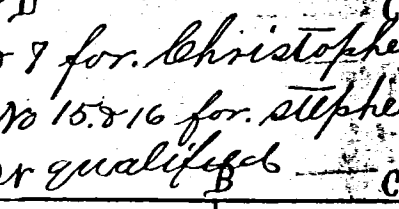 & 7 for. Christophe
No 15.&16 for. stephe
qualified
B C